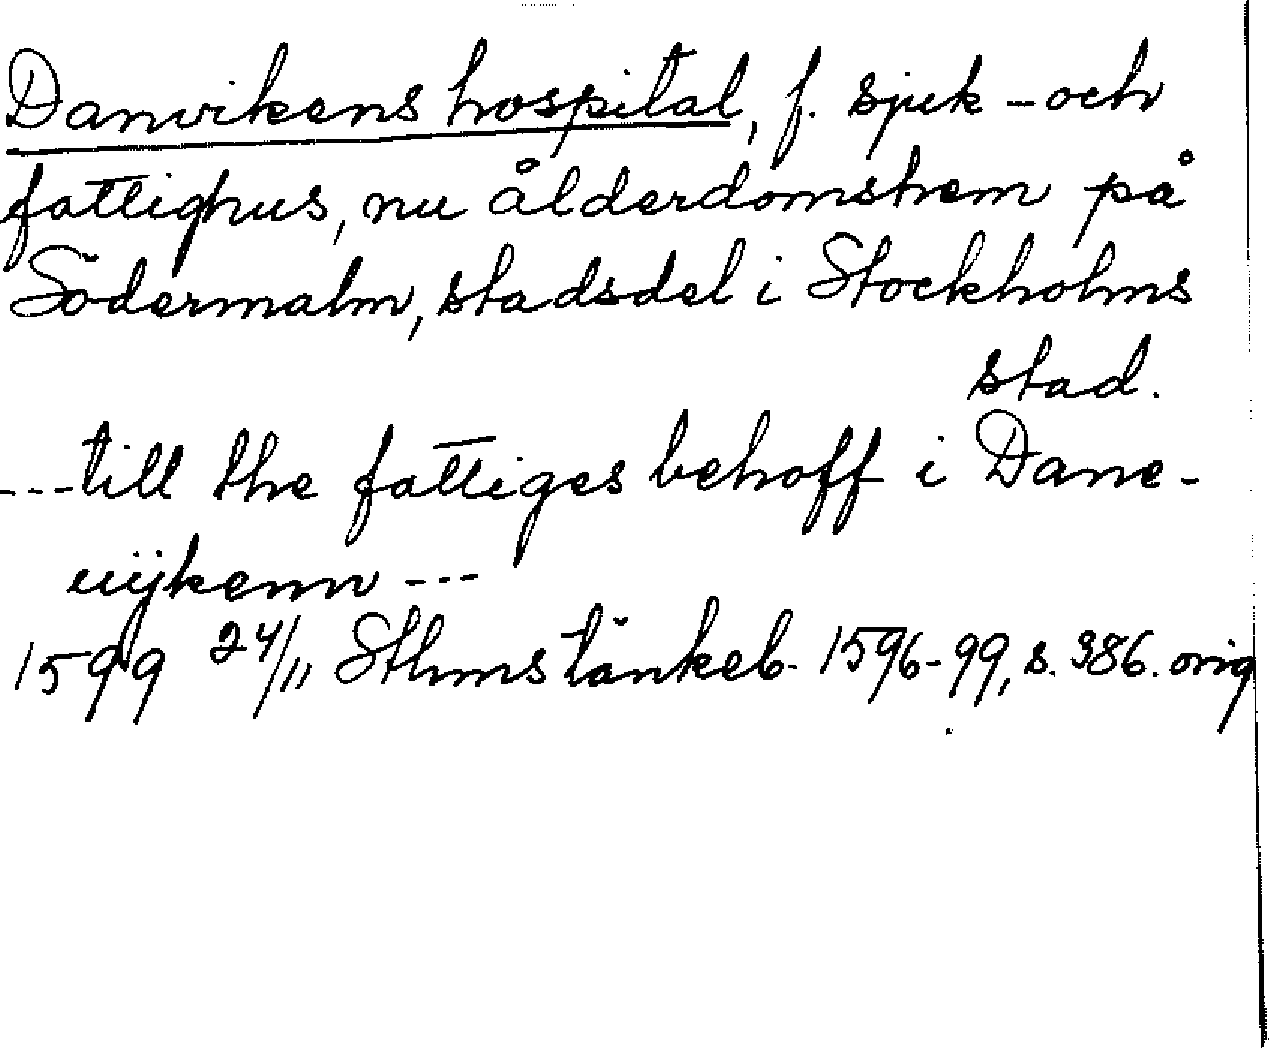 Danvikens hospital, f. sjuk- och
fattighus, nu ålderdomshem på
Södermalm, stadsdel i Stockholms
stad.
---till the fattiges behoff i Dane-
uijkenn ---
1599 24/11 Sthms tänkeb. 1596-99, s. 386. orig